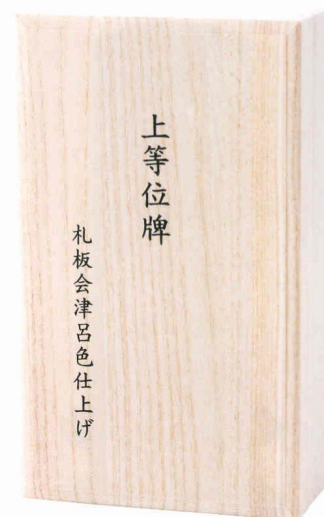 上等位牌
札板会津呂色仕上げ